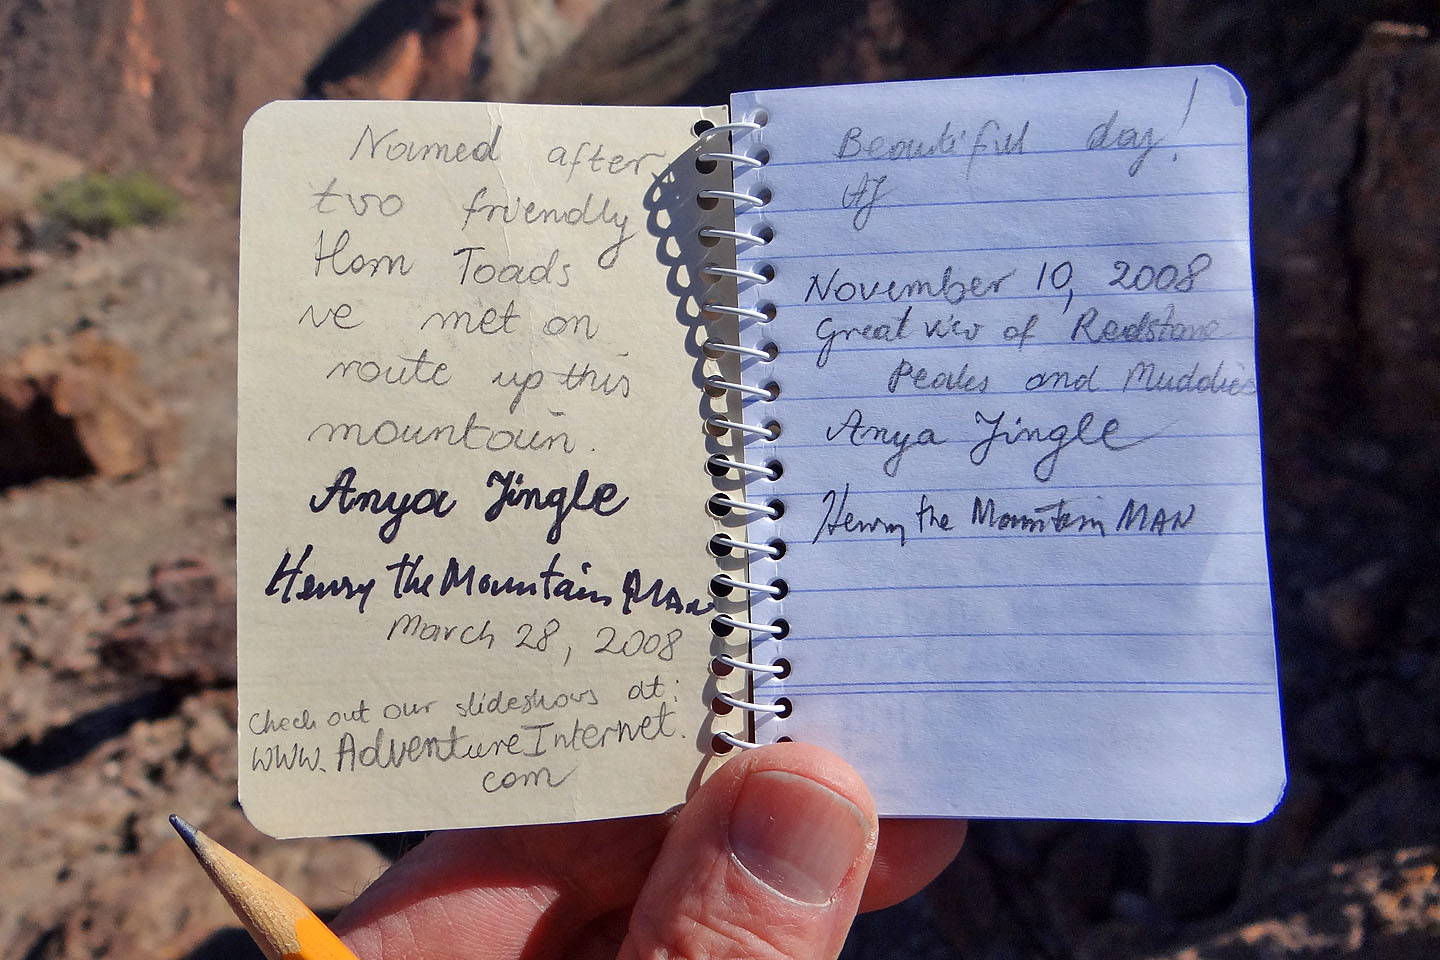 Named after
two friendly
Horn Toads
we met on
route up this
mountain.
Anya Jingle
Henry the Mountain MAN
March 28, 2008
Check out our slideshows at:
WWW.AdventureInternet.
com
Beautiful day!
AJ
November 10, 2008
Great view of Redstone
Peaks and Muddies
Anya Jingle
Henry the Mountain MAN